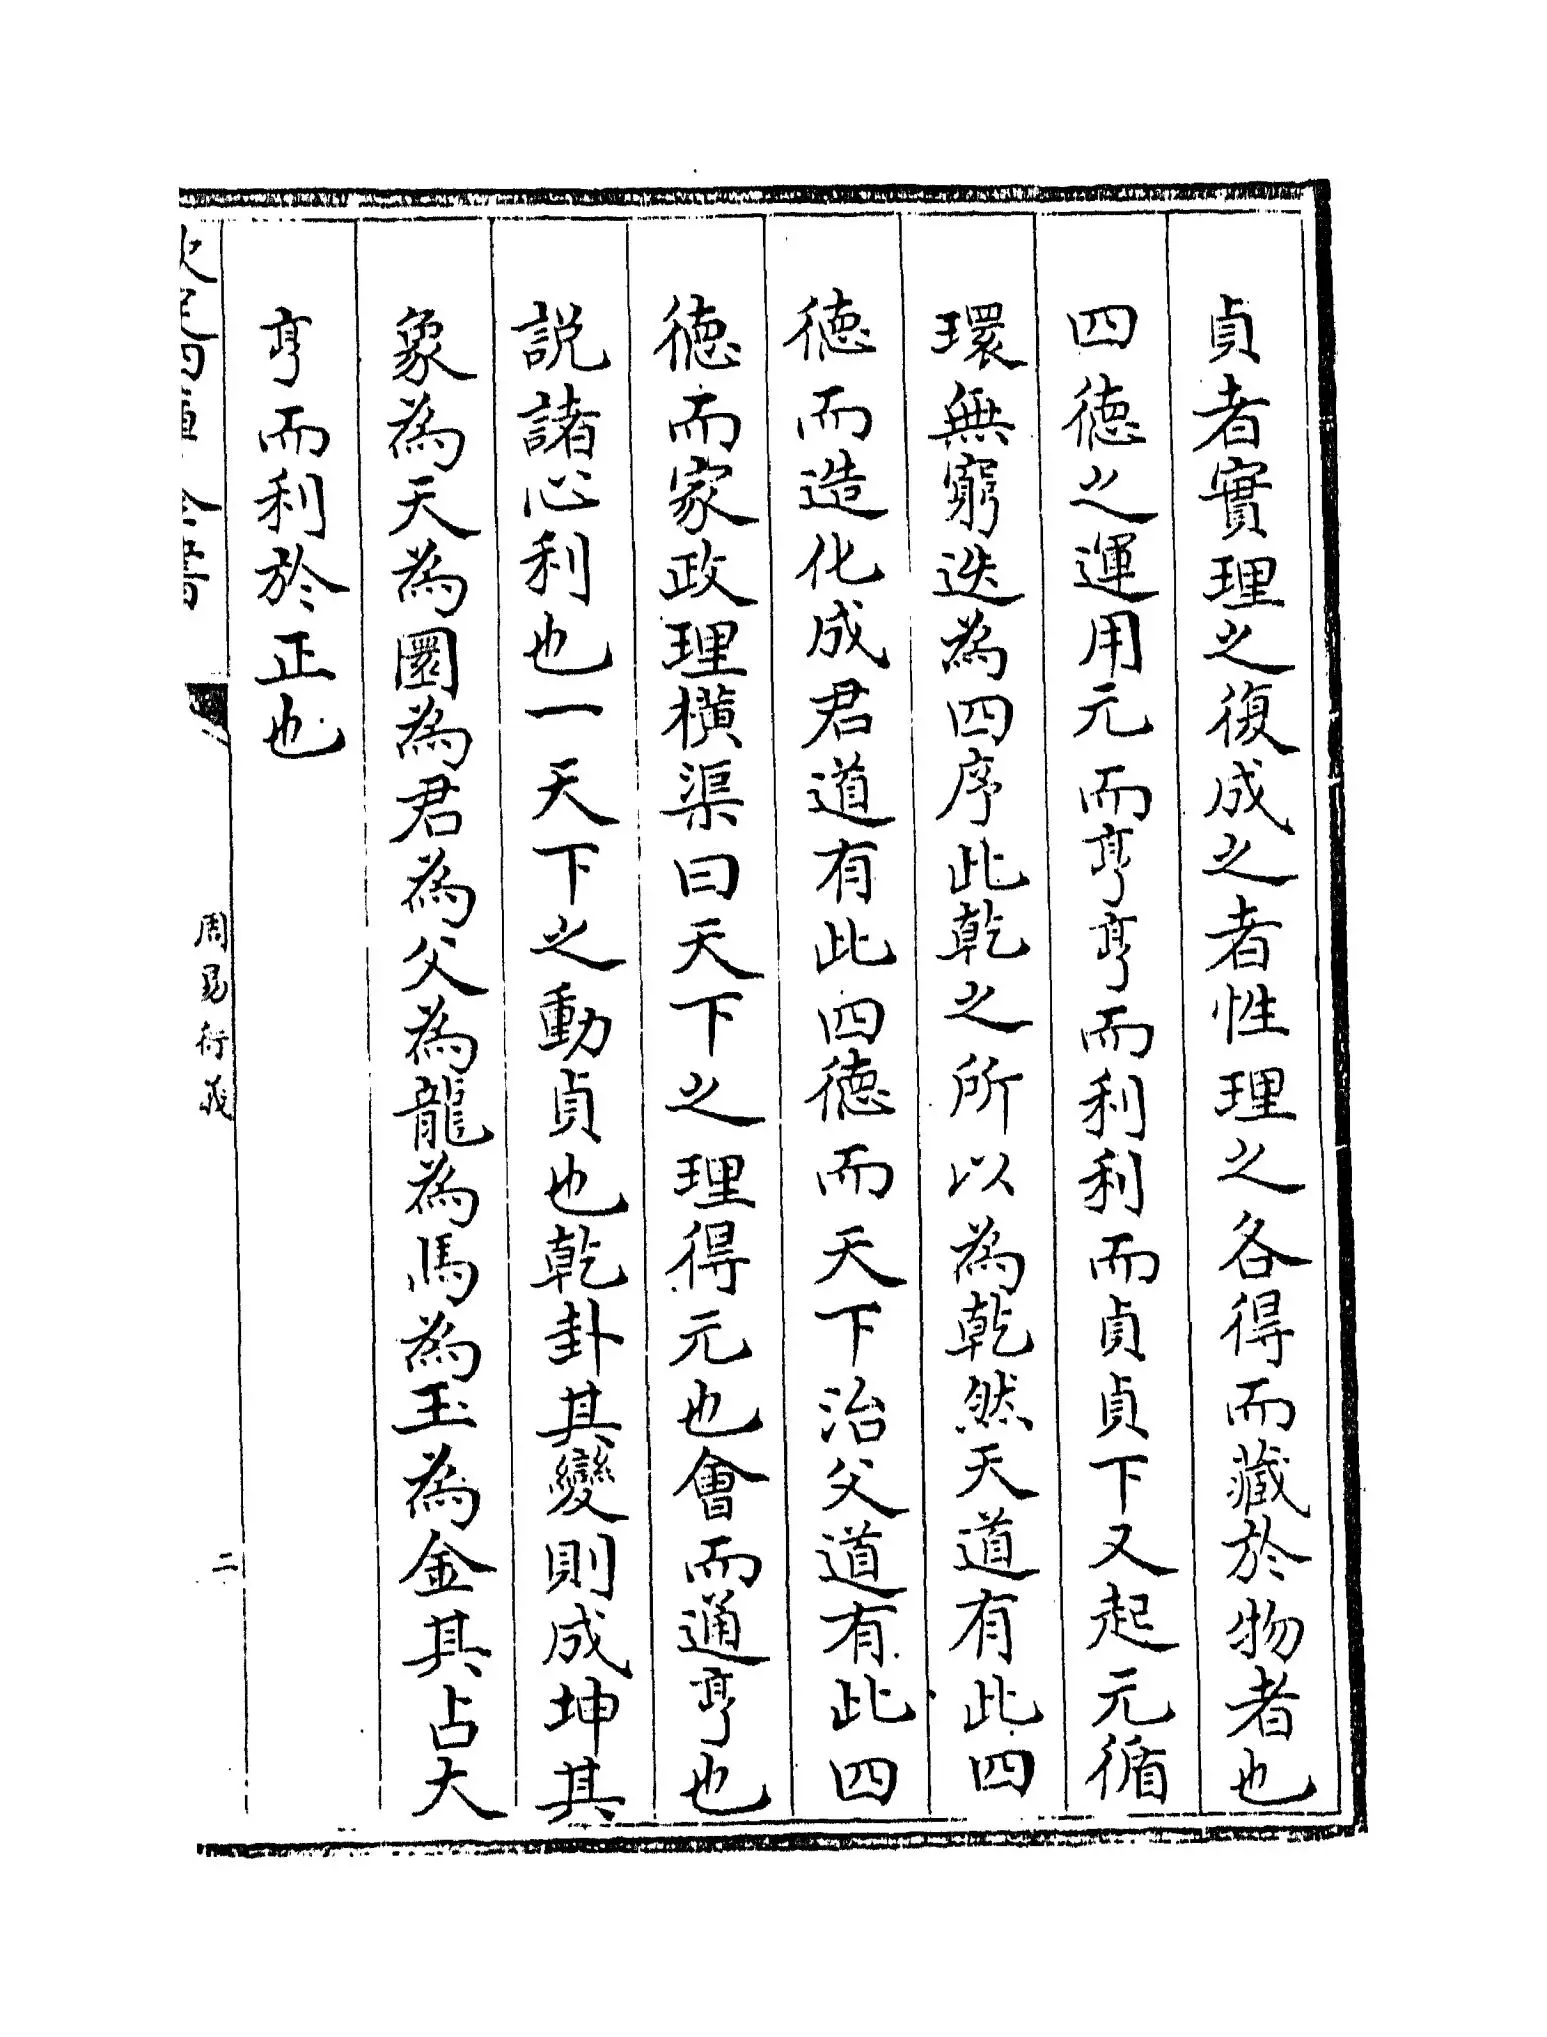 貞者實理之復成之者性理之各得而藏於物者也
四德之運用元而亨亨而利利而貞貞下又起元循
環無窮迭為四序此乾之所以為乾然天道有此四
德而造化成君道有此四德而天下治父道有此四
德而家政理橫渠曰天下之理得元也會而通亨也
説諸心利也一天下之動貞也乾卦其變則成坤其
象為天為圜為君為父為龍為馬為玉為金其占大
亨而利於正也
欽定四庫全書
周易衍義
二